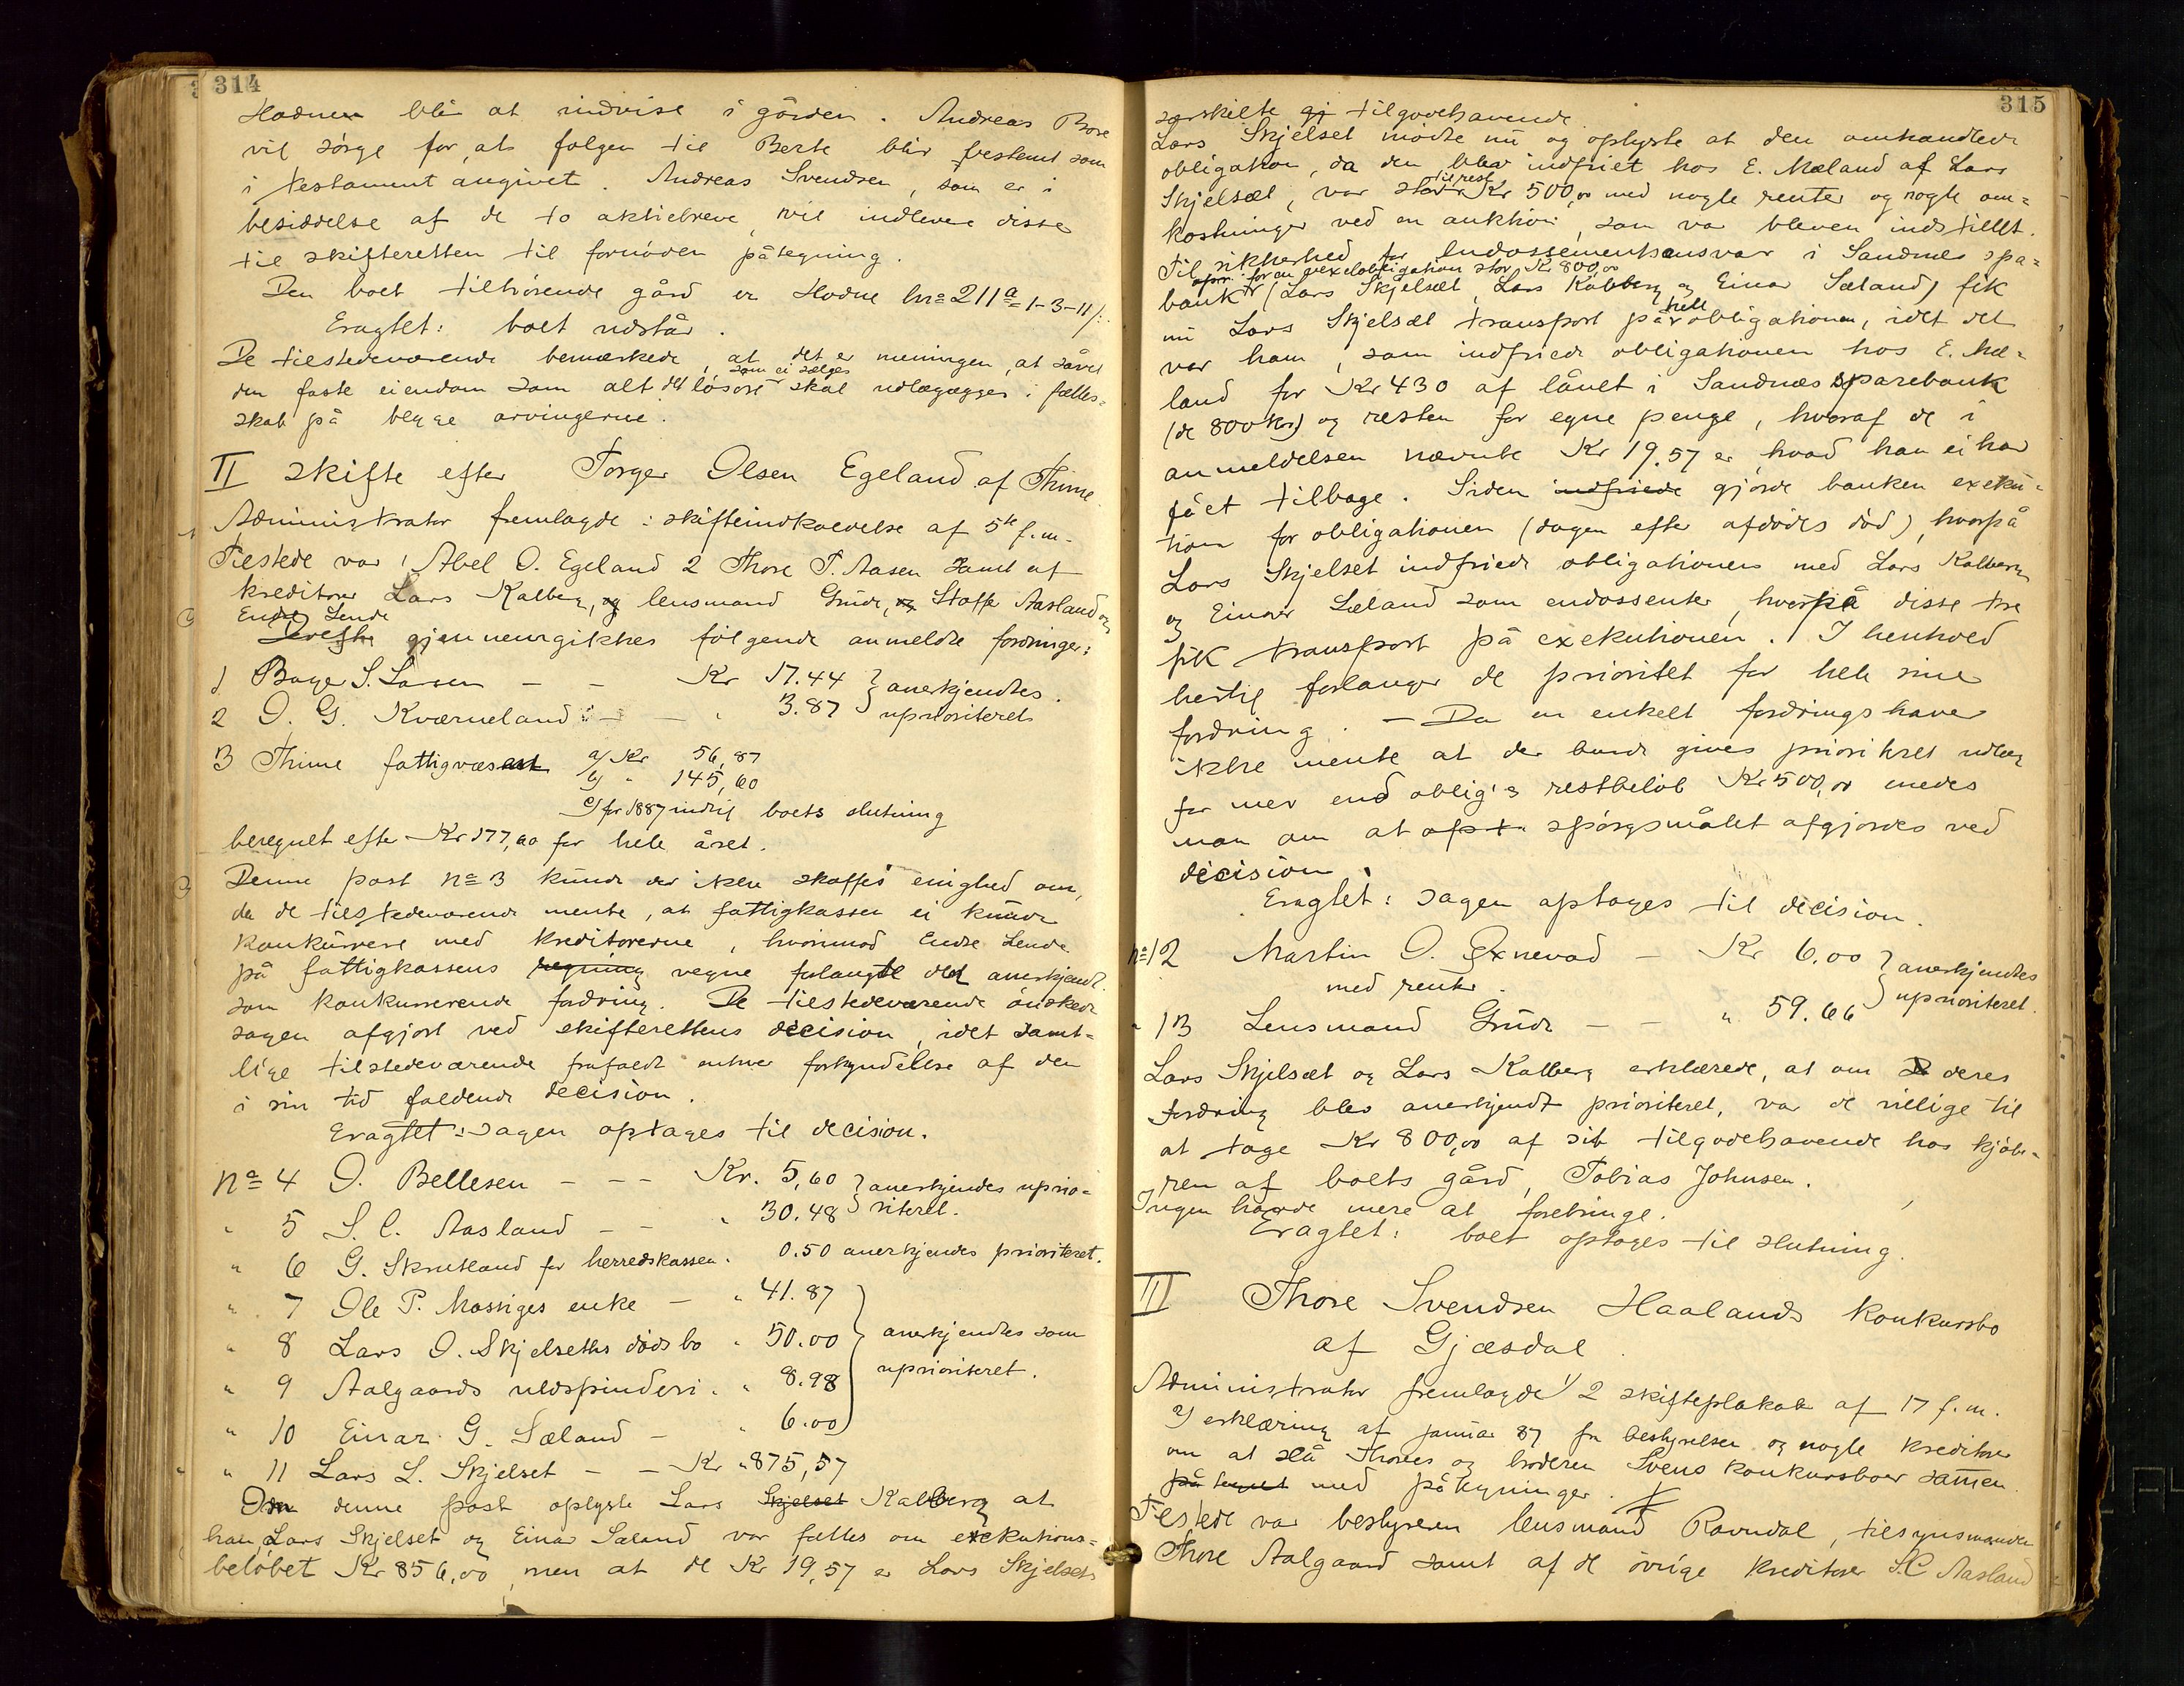 314
Hodnen bli at indvise i gården. Andreas Bore
vil sørge for, at følgen til Berte blir bestemt som
i testament angivet. Andreas Svendsen, som er i
besiddelse af de to aktiebreve, vil indlevere disse
til skifteretten til fornøden påtegning.
Den boet tilhørende gård er Hodne lnr 211a = 1-3-11/:
Eragtet: boet udstår.
De tilstedeværende bemærkede, at det er meningen, at såvel
som ei sælges
den faste eiendom som alt det løsøre skal udlægægges i fælles=
skab på begge arvingerne.
II Skifte efter Torger Olsen Egeland af Thime
Administrator fremlagde: skifteindkaldelse af 5te f.m.
Tilstede var 1 Abel O. Egeland 2 Thore T. Aasen samt af
kreditorer Lars Kalberg, og lensmand Grude, og Staffe Aasland og
Endre Lende
Derefter gjennemgikkes følgende anmeldte fordringer:
1 Baye S. Larsen – – Kr 17.44 } anerkjendtes
2 O. G. Kværneland – – " 3.87 } uprioriteret
3 Thime fattigvæsen a/ Kr 56,87
b/ " 145,60
c/ for 1887 indtil boets slutning
beregnet efter Kr 177,60 for hele året.
Denne post no 3 kunde der ikke skaffes enighed om,
da de tilstedeværende mente, at fattigkassen ei kunde
konkurrere med kreditorerne, hvorimod Endre Lende
på fattigkassens regning vegne forlangte det anerkjendt
som konkurrerende fordring. De tilstedeværende ønskede
sagen afgjort ved skifterettens decision, idet samt=
lige tilstedeværende frafaldt enhver forkyndelse af den
i sin tid faldende decision.
Eragtet: Sagen optages til decision.
no 4 O. Bellesen – – – Kr. 5,60 } anerkjendes uprio=
" 5 S. C. Aasland – – " 30.48 } riteret.
" 6 G. Skrutland for herredskassen " 0.50 anerkjendes prioriteret.
" 7 Ole P. Mossiges enke – " 41.87
" 8 Lars O. Skjelseths dødsbo " 50.00 anerkjendtes som
" 9 Aalgaards uldspinderi " 8.98 uprioriteret.
" 10 Einar G. Sæland – " 6.00
" 11 Lars L. Skjelset – – Kr "875,57
Om denne post oplyste Lars Skjelset Kalberg at
han, Lars Skjelset og Einar Sæland var fælles om exekutions=
beløbet Kr 856,00, men at de Kr 19,57 er Lars Skjelsets
315
særskilte gj tilgodehavende
Lars Skjelset mødte nu og oplyste at den omhandlede
obligation, da den blev indfriet hos E. Mæland af Lars
til rest
Skjelsæt, var stor Kr 500,00 med nogle renter og nogle om=
kostninger ved en auktion, som var bleven indstillet.
Til sikkerhed for Endossementsansvar i Sandnes spa=
for en vexelobligation stor Kr 800,00
bank (Lars Skjelsæt, Lars Kalberg og Einar Sæland) fik
hele
nu Lars Skjelsæt transport på obligationen, idet det
var ham, som indfriede obligationen hos E. Mæ=
land for Kr 430 af lånet i Sandnæs sparebank
(de 800 Kr) og resten for egne penge, hvoraf de i
anmeldelsen nævnte Kr 19.57 er, hvad han ei har
fået tilbage. Siden indfriede gjorde banken exeku=
tion for obligationen (dagen efter afdødes død), hvorpå
Lars Skjelset indfriede obligationen med Lars Kalberg
og Einar Sæland som endossenter, hvorpå disse tre
fik transport på exekutionen. I henhold
hertil forlanger de prioritet for hele sine
fordring. – Da en enkelt fordringshaver
ikke mente at der burde gives prioriteret udlæg
for mer end oblig's restbeløb Kr 500,00 enedes
man om at opt spørgsmålet afgjordes ved
decision.
Eragtet: Sagen optages til decision.
no 12 Martin O. Exnevad – Kr 6.00 } anerkjendtes
med renter.
" 13 Lensmand Grude – – " 59.66 } uprioriteret.
Lars Skjelsæt og Lars Kalberg erklærede, at om deres
fordring blev anerkjendt prioriteret, var de villige til
at tage Kr 800,00 af sit tilgodehavende hos kjøbe=
ren af boets gård, Tobias Johnsen.
Ingen havde mere at forebringe.
Eragtet: boet optages til slutning.
III Thore Svendsen Haalands konkursbo
af Gjæsdal
Administrator fremlagde 1/ 2 skifteplakate af 17 f.m.
2/ erklæring af januar 87 fra bestyrelsen og nogle kreditorer
om at slå Thores og broderen Svens konkursboer sammen
påtegnet med påtegninger.
Tilstede var bestyreren lensmand Ravndal, tilsynsmanden
Thore Aalgaard samt af de øvrige kreditorer S.C Aasland